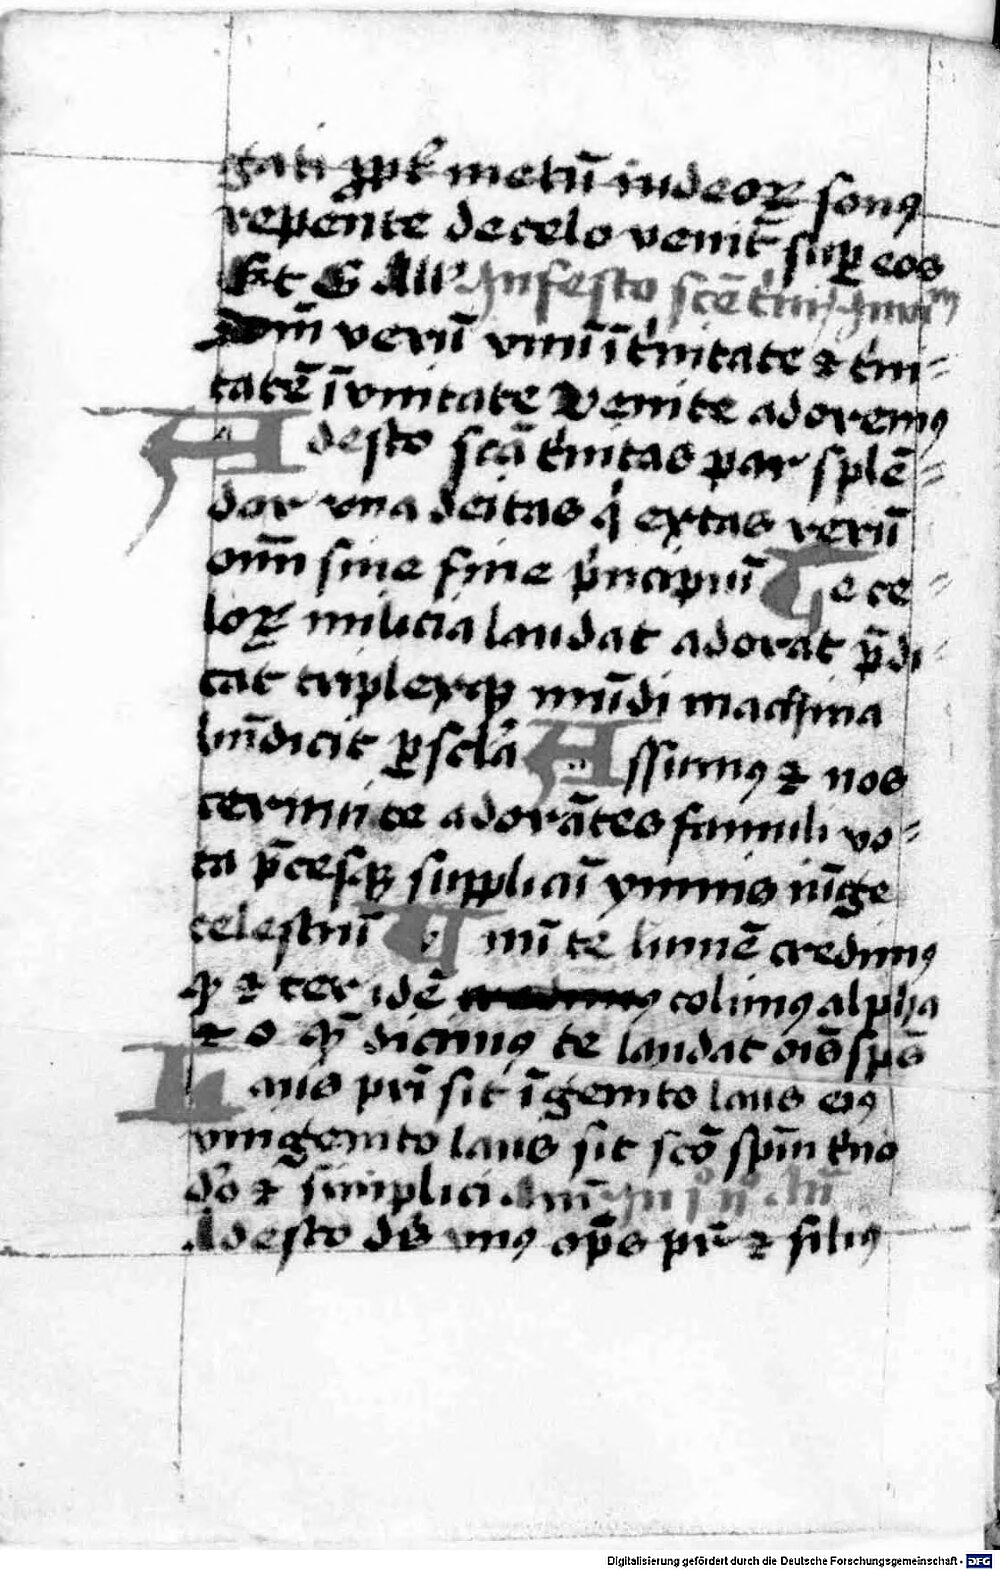 gati ꝓpt̄ metū iudeoꝝ sonꝰ
repente de celo venit̄ suꝑ eos
In festo scē t̄nit̄
Dm̄ verū vnū ī t̄nitate ⁊ t̄ni-
tatē ī vnitate Venite adoremꝰ
Adesto scā t̄nitas par splē-
dor vna deitas q̇ extas rerū
om̄ sine fine p̄ncipiū Te ce-
loꝝ milicia laudat adorat p̄di
cat triplexqꝫ mūdi machina
bn̄dicit ꝑ scl̄a Assumꝰ ⁊ nos
cernui te adorātes famuli vo-
ta p̄cesqꝫ supplicū ymnis iūge
celestiū Vnū te lumē credimꝰ
qͥ ⁊ ter idē colimꝰ alpha
⁊ o qͫ dicimꝰ te laudat oīs sps̄
Laus pr̄i sit īgenito laus eiꝰ
vnigenito laus sit sc̄o spūi t̄no
dō ⁊ simplici Am̄ In
Adesto ds̄ vnꝰ op̄s pr̄ ⁊ filiꝰ
Digitalisierung gefördert durch die Deutsche Forschungsgemeinschaft - DFG